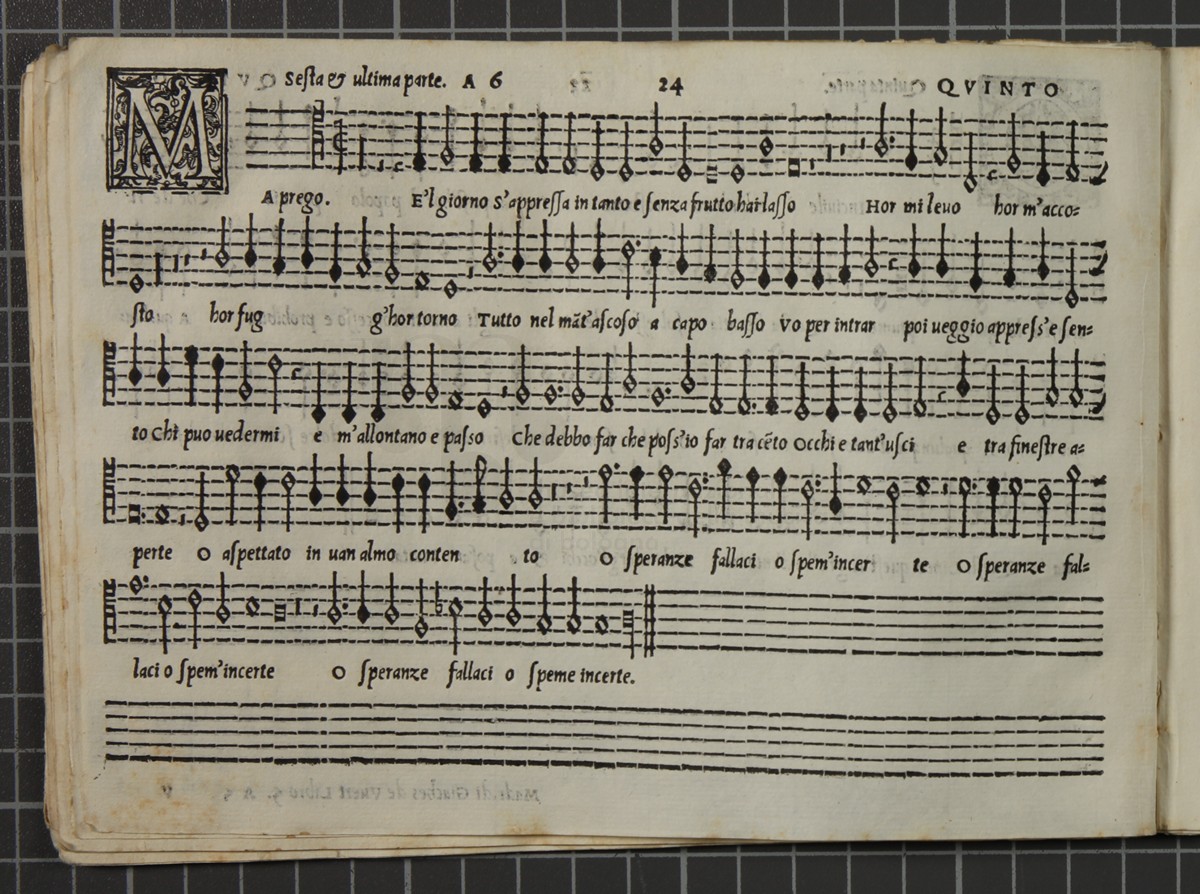 M Sesta & ultima parte. A 6 24 QVINTO
A prego. E'l giorno s'appreſſa in tanto e ſenza frutto hai laſſo Hor mi leuo hor m'acco=
ſto hor fug g'hor torno Tutto nel mãt'aſcoſo a capo baſſo Vo per intrar poi ueggio appreſs'e ſen=
to Chi puo uedermi e m'allontano e paſso Che debbo far che poſs'io far tra cẽto Occhi e tant'uſci e tra fineſtre a=
perte O aſpettato in uan almo conten to O ſperanze fallaci o ſpem'incer te O ſperanze fal=
laci o ſpem'incerte O ſperanze fallaci o ſpeme incerte.